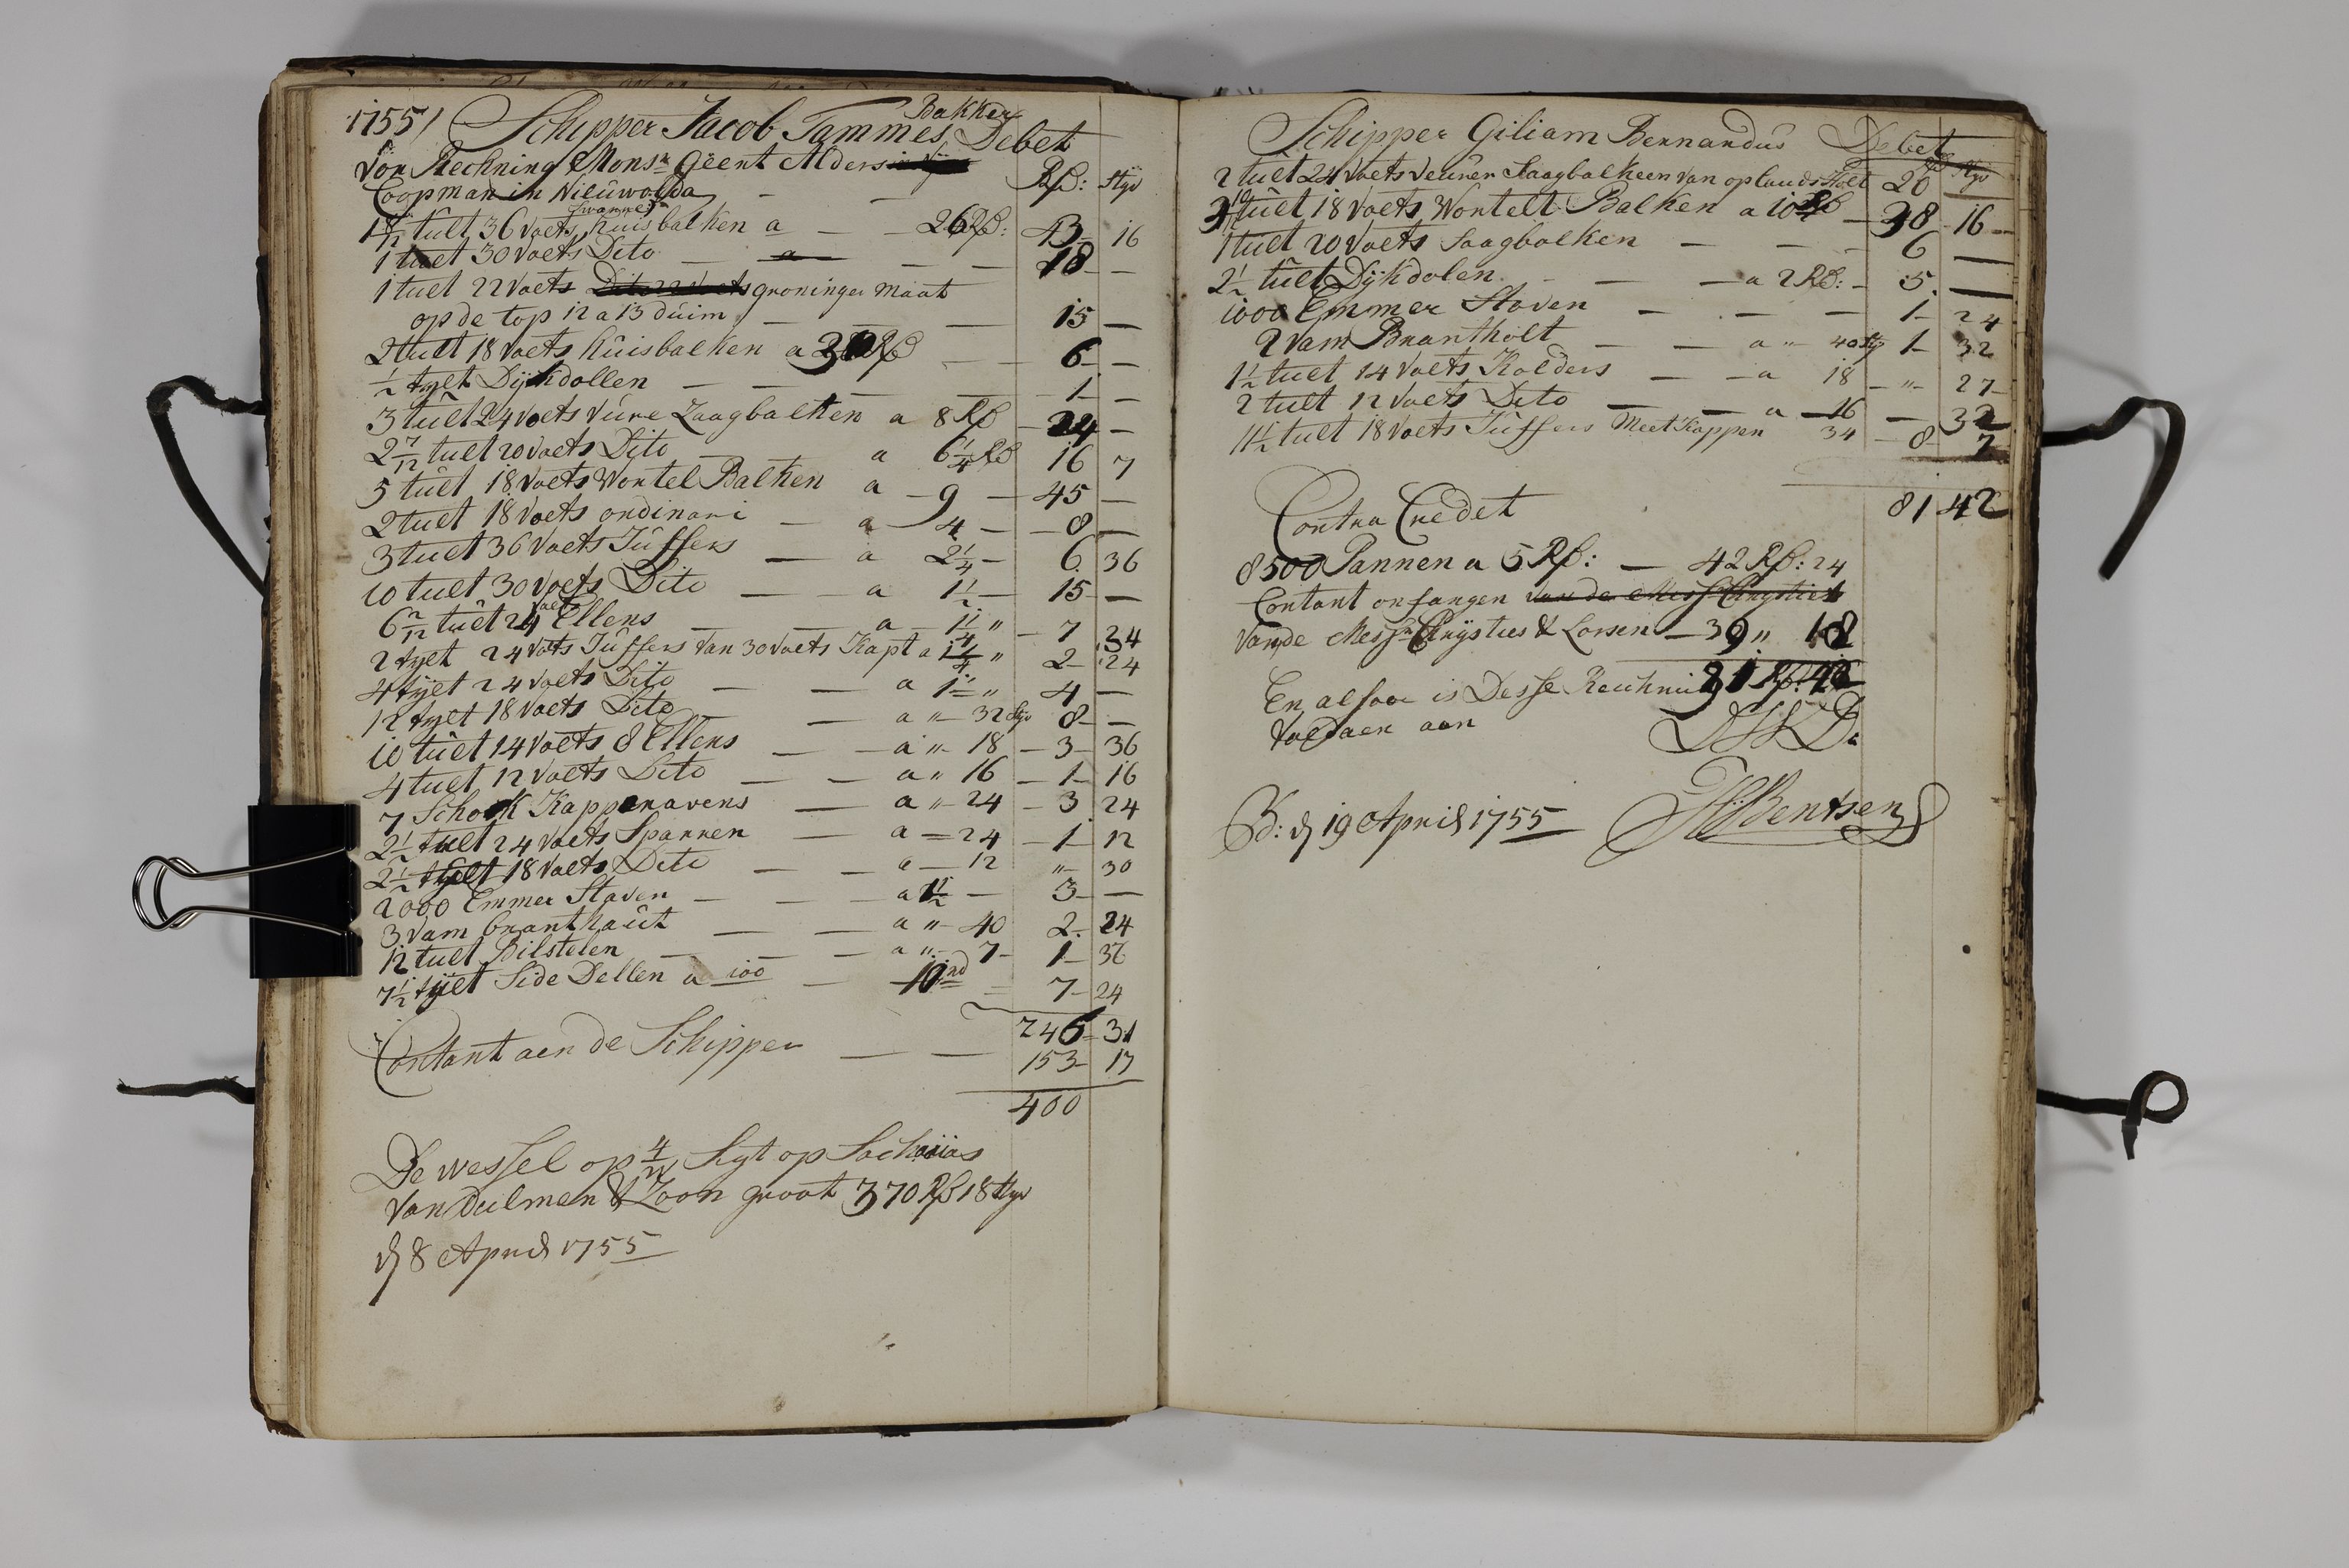 1755/ Schipper Jacob Tammes Bakker Debet
Vor Rechning Monsr Geert Alders
Coopman in Nieuwolda — — Rß: Styv
1 8/12 tuêlt 36 voets swaare huisbalken a — — 26 Rß: 43 - 16
1 tuet 30 voets Dito — — — 18 - —
1 tuet 22 voets groninger maat
op de top 12 a 13 duim — — — 15 —
2 tuêt 18 voets huisbalken a 3 Rß — 6 - —
1/2 tyet Dijkdollen — — — 1 - —
3 tuêt 24 voets vure Zaagbalken a 8 Rß — 24 —
2 7/12 tuet 20 voets Dito — a 6 1/4 Rß 16 7
5 tuêt 18 voets Wortel Balken a — 9 — 45 —
2 tuet 18 voets ordinari — a 4 — 8 —
3 tuet 36 voets Jüffers — a 2 1/4 — 6 36
10 tuet 30 voets Dito — — a 1 1/2 — 15 —
6 2/12 tuêt 24 voets Ellens — — a 1 1/4 " — 7 34
2 tyet 24 voets Jüffers van 30 voets Kapt a 1 1/4 " 2 - 24
4 tyet 24 voets Dito — — a 1 " 4 —
12 tyet 18 voets Dito — — a " 32 styv 8 - —
10 tüêt 14 voets 8 Ellens — — a " 18 — 3 - 36
4 tuet 12 voets Dito — — a " 16 — 1 - 16
7 Schock Kappenavens — a " 24 — 3 24
2 1/2 tuêt 24 voets Sparren — a = 24 — 1 - 12
2 1/2 tyêt 18 voets Dito — — a — 12 " - 30
2000 Emmer Staven — — — a 1 1/2 — 3 - —
3 vam branthaüt — — a " 40 2 - 24
12 tuet Bilstelen — — — a " 7 - 1 - 36
7 1/2 tyiet Side Dellen a 100 — 7 - 24
246 - 31
Contant aen de Schipper — — 153 - 17
400
De wessel op Sigt op Sacharias
van Dulmen & Zoon groot 370 Rß 18 styv
d 8 April 1755
Schipper Giliam Bernandus Debet
2 tuêt 24 voets veuren Saagbalkeen van oplands Holt 20 Styv
tuêt 18 voets Wortelt Balken a 10 Rß — 38 - 16 —
1 tuet 20 voets Saagbolken — — — 6 —
2 1/2 tuêt Dijkdolen — — — a 2 Rß: - 5 —
1000 Emmer Staven — — — 1 - 24
2 vam Brantholt — — a " 40 sty 1 - 32
1 1/2 tuet 14 voets Kolders — — a 18 — " - 27 -
2 tult 12 voets Dito — — a — 16 — 32
11 1/2 tuet 18 voets Jüffers Meet Kappen 34 — 8 - 7
81 42
Contra Credet
8500 Pannen a 5 Rß: — 42 Rß: 24
Contant onfangen van de Mess Chrysties
van de Messr Chrysties & Lorsen — 39 " 18
En alsoo is Desse Reichning 81 Rß: 42
voldaen aan
B: d 19 April 1755 HBentsen